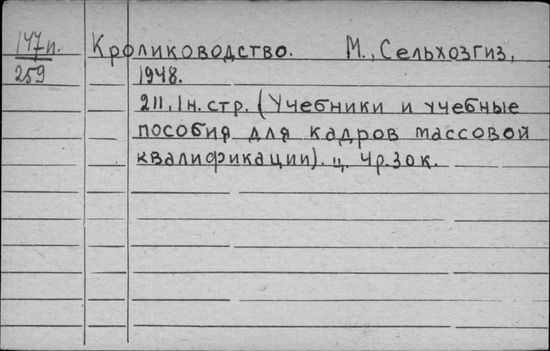 147п.
259
Кролиководство. М., Сельхозгиз,
1948.
211, 1н. стр. (Учебники и учебные
пособия для кадров массовой
квалификации). ц. 4р. 30к.